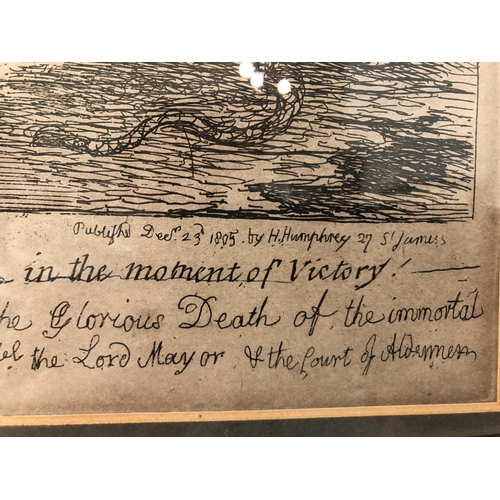 Publish'd Decr. 23d 1805 by H. Humphrey 27 St James's
in the moment of Victory!
the Glorious Death of the immortal
the Lord Mayor & the Court of Aldermen